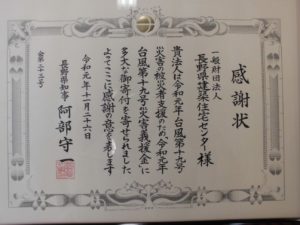 感謝状
一般財団法人
長野県建築住宅センター様
貴法人は令和元年台風第十九号
災害の被災者支援のため、令和元年
台風第十九号災害義援金に
多大な御寄付を寄せられました
よってここに感謝の意を表します
令和元年十一月二十六日
長野県知事 阿部守一